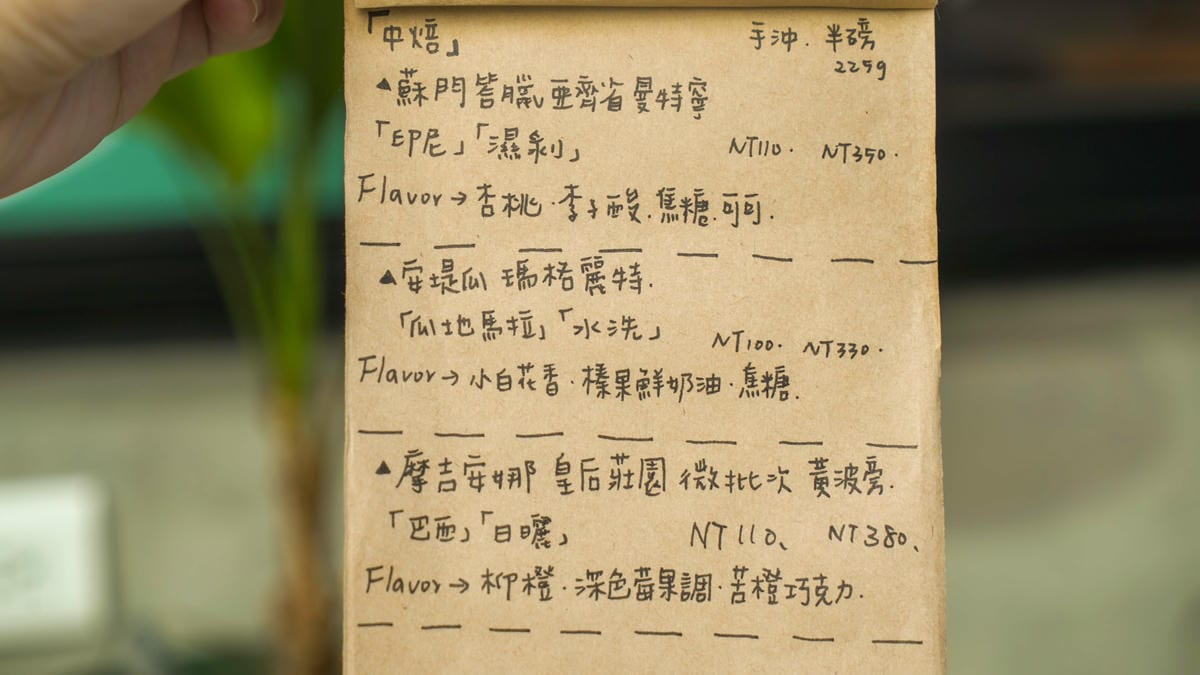 「中焙」 手沖. 半磅
225g
▲蘇門答臘亞齊省曼特寧
「印尼」「濕剝」 NT110. NT350.
Flavor→杏桃.李子酸.焦糖.可可.
▲安堤瓜 瑪格麗特.
「瓜地馬拉」「水洗」 NT100. NT330.
Flavor→小白花香.榛果鮮奶油.焦糖.
▲摩吉安娜 皇后莊園 微批次 黃波旁.
「巴西」「日曬」 NT110、 NT380、
Flavor→柳橙.深色莓果調.苦橙巧克力.